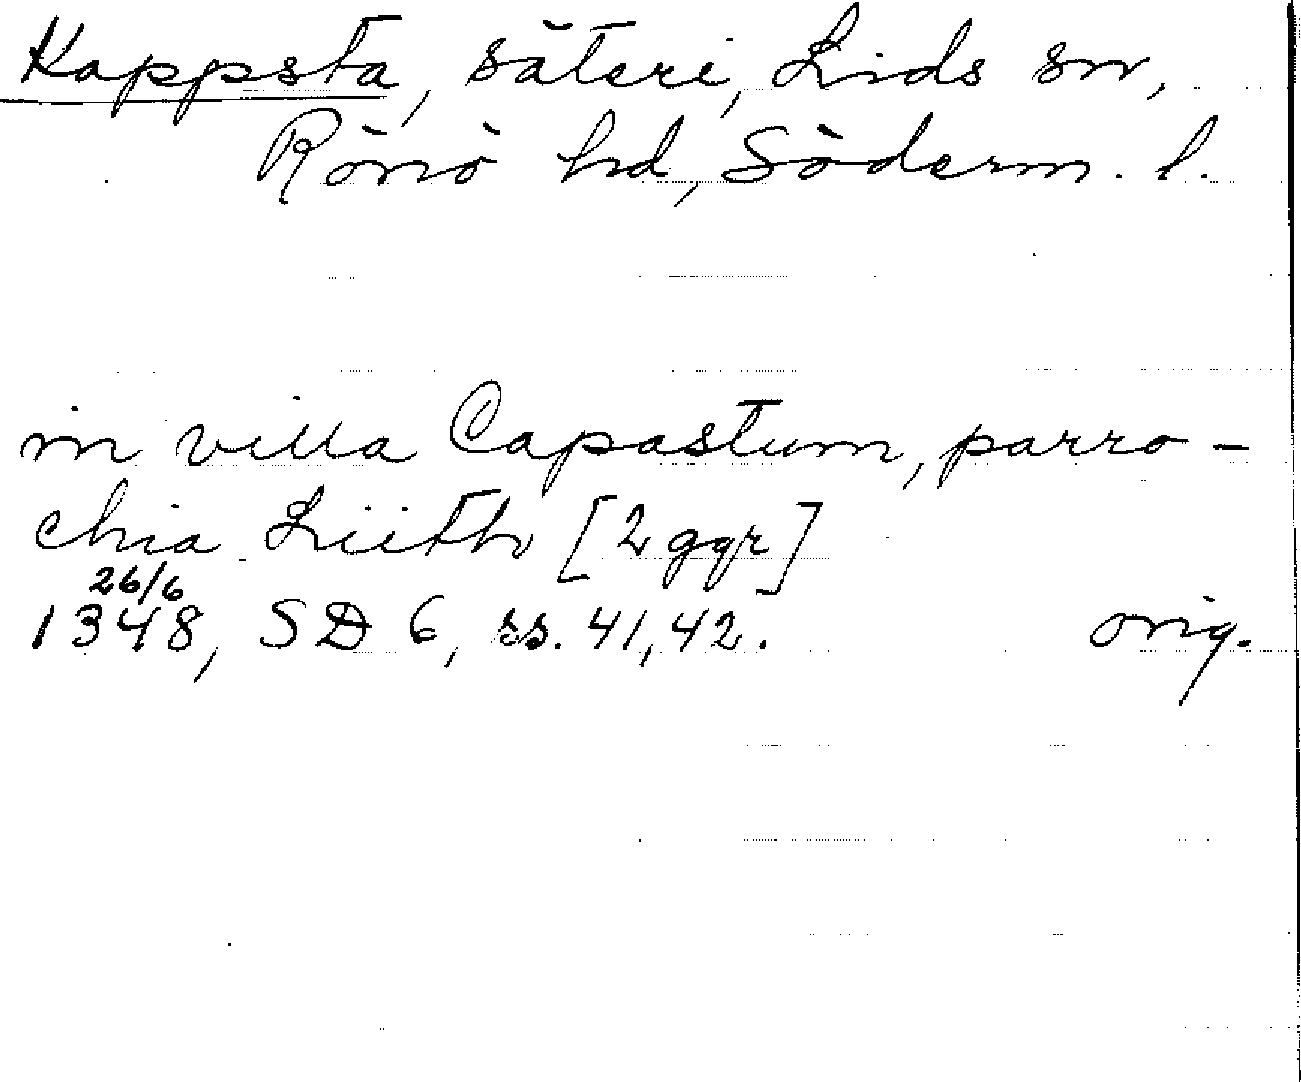 Kappsta, säteri, Lids sn,
Rönö hd, Söderm. l.
in villa Capastum, parro-
chia Liith [2 ggr]
26/6
1348, SD 6, ss. 41, 42. orig.